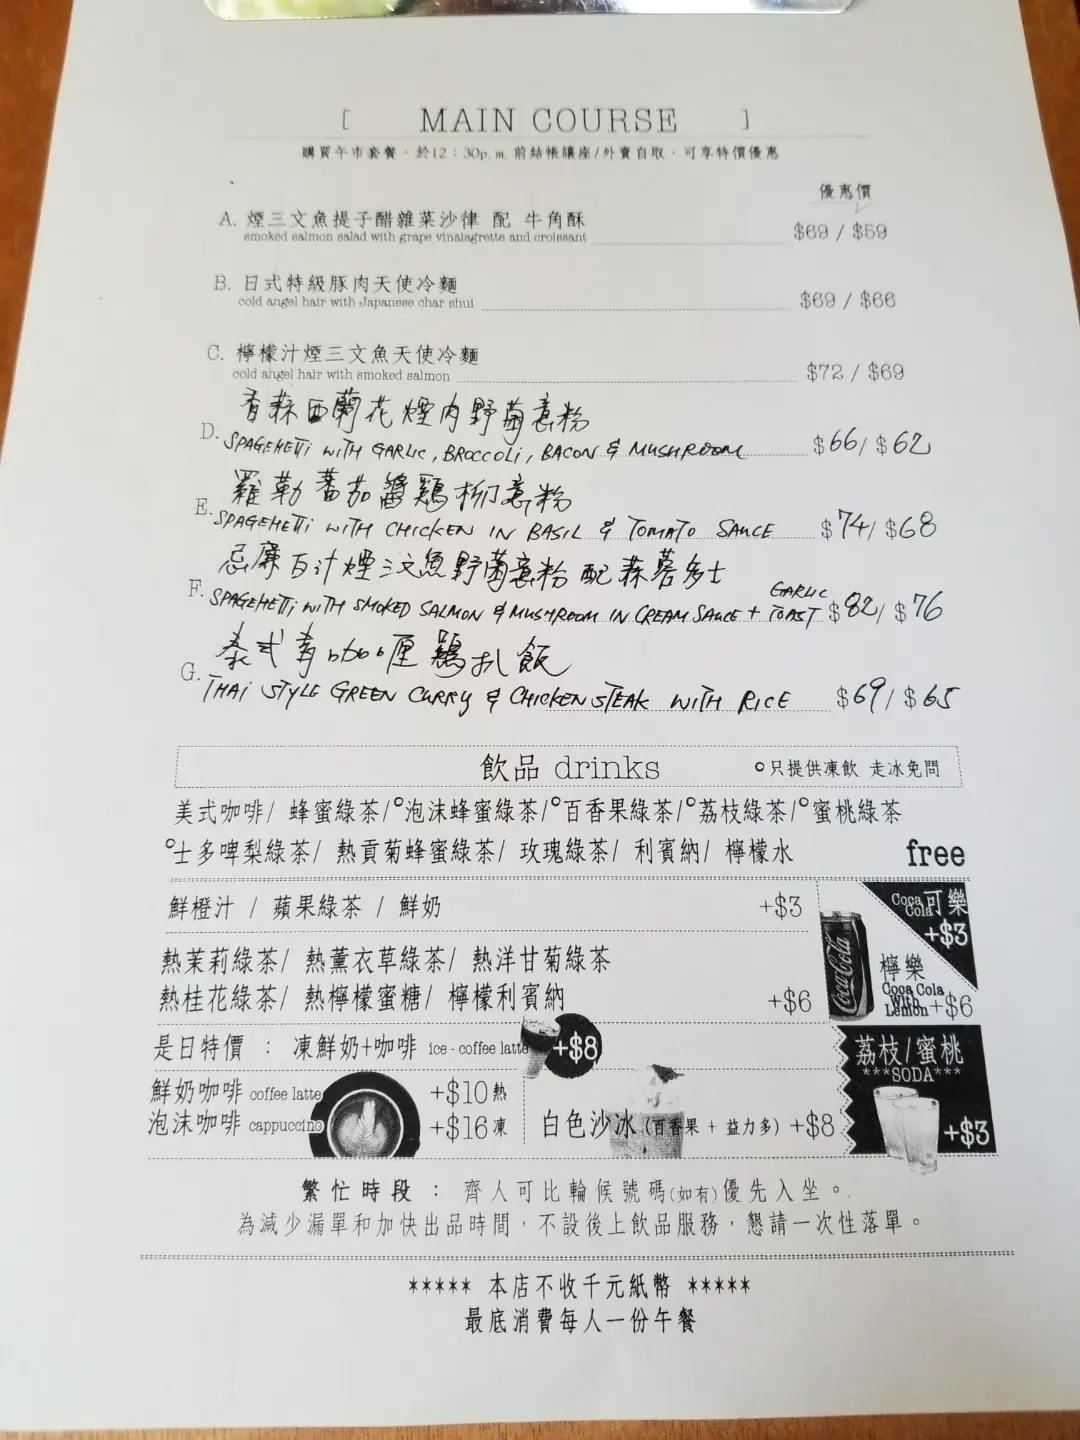 [ MAIN COURSE ]
購買午市套餐，於12：30p.m.前結帳讓座/外賣自取，可享特價優惠
優惠價
A. 煙三文魚提子醋雜菜沙律 配 牛角酥
smoked salmon salad with grape vinaigrette and croissant $69 / $59
B. 日式特級豚肉天使冷麵
cold angel hair with Japanese char shui $69 / $66
C. 檸檬汁煙三文魚天使冷麵
cold angel hair with smoked salmon $72 / $69
香蒜西蘭花煙肉野菌意粉
D. SPAGEHETTi WITH GARLIC, BROCCOLi, BACON & MUSHROOM $66/ $62
羅勒蕃茄醬鷄柳意粉
E. SPAGEHETTi WITH CHICKEN IN BASIL & TOMATO SAUCE $74/ $68
忌廉白汁煙三文魚野菌意粉 配 蒜蓉多士
F. SPAGEHETTi WITH SMOKED SALMON & MUSHROOM IN CREAM SAUCE + GARLIC TOAST $82/ $76
泰式青咖喱鷄扒飯
G. THAI STYLE GREEN CURRY & CHICKEN STEAK WITH RICE $69/ $65
飲品 drinks °只提供凍飲 走冰免問
美式咖啡/ 蜂蜜綠茶/°泡沫蜂蜜綠茶/°百香果綠茶/°荔枝綠茶/°蜜桃綠茶
°士多啤梨綠茶/ 熱貢菊蜂蜜綠茶/ 玫瑰綠茶/ 利賓納/ 檸檬水 free
鮮橙汁 / 蘋果綠茶 / 鮮奶 +$3
Coca Cola 可樂
+$3
熱茉莉綠茶/ 熱薰衣草綠茶/ 熱洋甘菊綠茶
熱桂花綠茶/ 熱檸檬蜜糖/ 檸檬利賓納 +$6
Coca-Cola
檸樂
Coca Cola With Lemon +$6
是日特價 ： 凍鮮奶+咖啡 ice-coffee latte +$8
鮮奶咖啡 coffee latte +$10 熱
泡沫咖啡 cappuccino +$16 凍
白色沙冰 (百香果 + 益力多) +$8
荔枝/蜜桃
***SODA***
+$3
繁忙時段 ： 齊人可比輪候號碼(如有)優先入坐。
為減少漏單和加快出品時間，不設後上飲品服務，懇請一次性落單。
***** 本店不收千元紙幣 *****
最底消費每人一份午餐